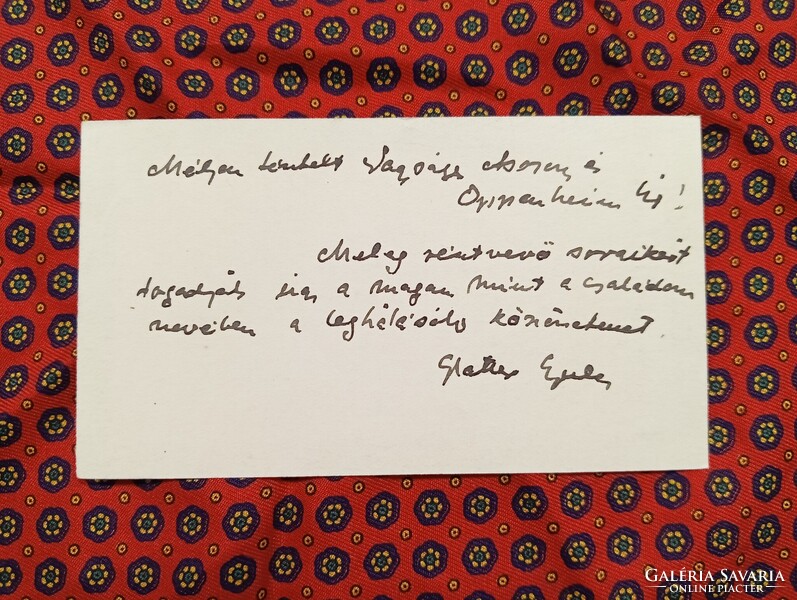 Mélyen tisztelt Nagyságos Asszony és
Oppenheim Úr!
Meleg résztvevő soraikért
fogadják úgy a magam mint a családom
nevében a leghálásabb köszönetemet.
Gyula
GALÉRIA SAVARIA
ONLINE PIACTÉR